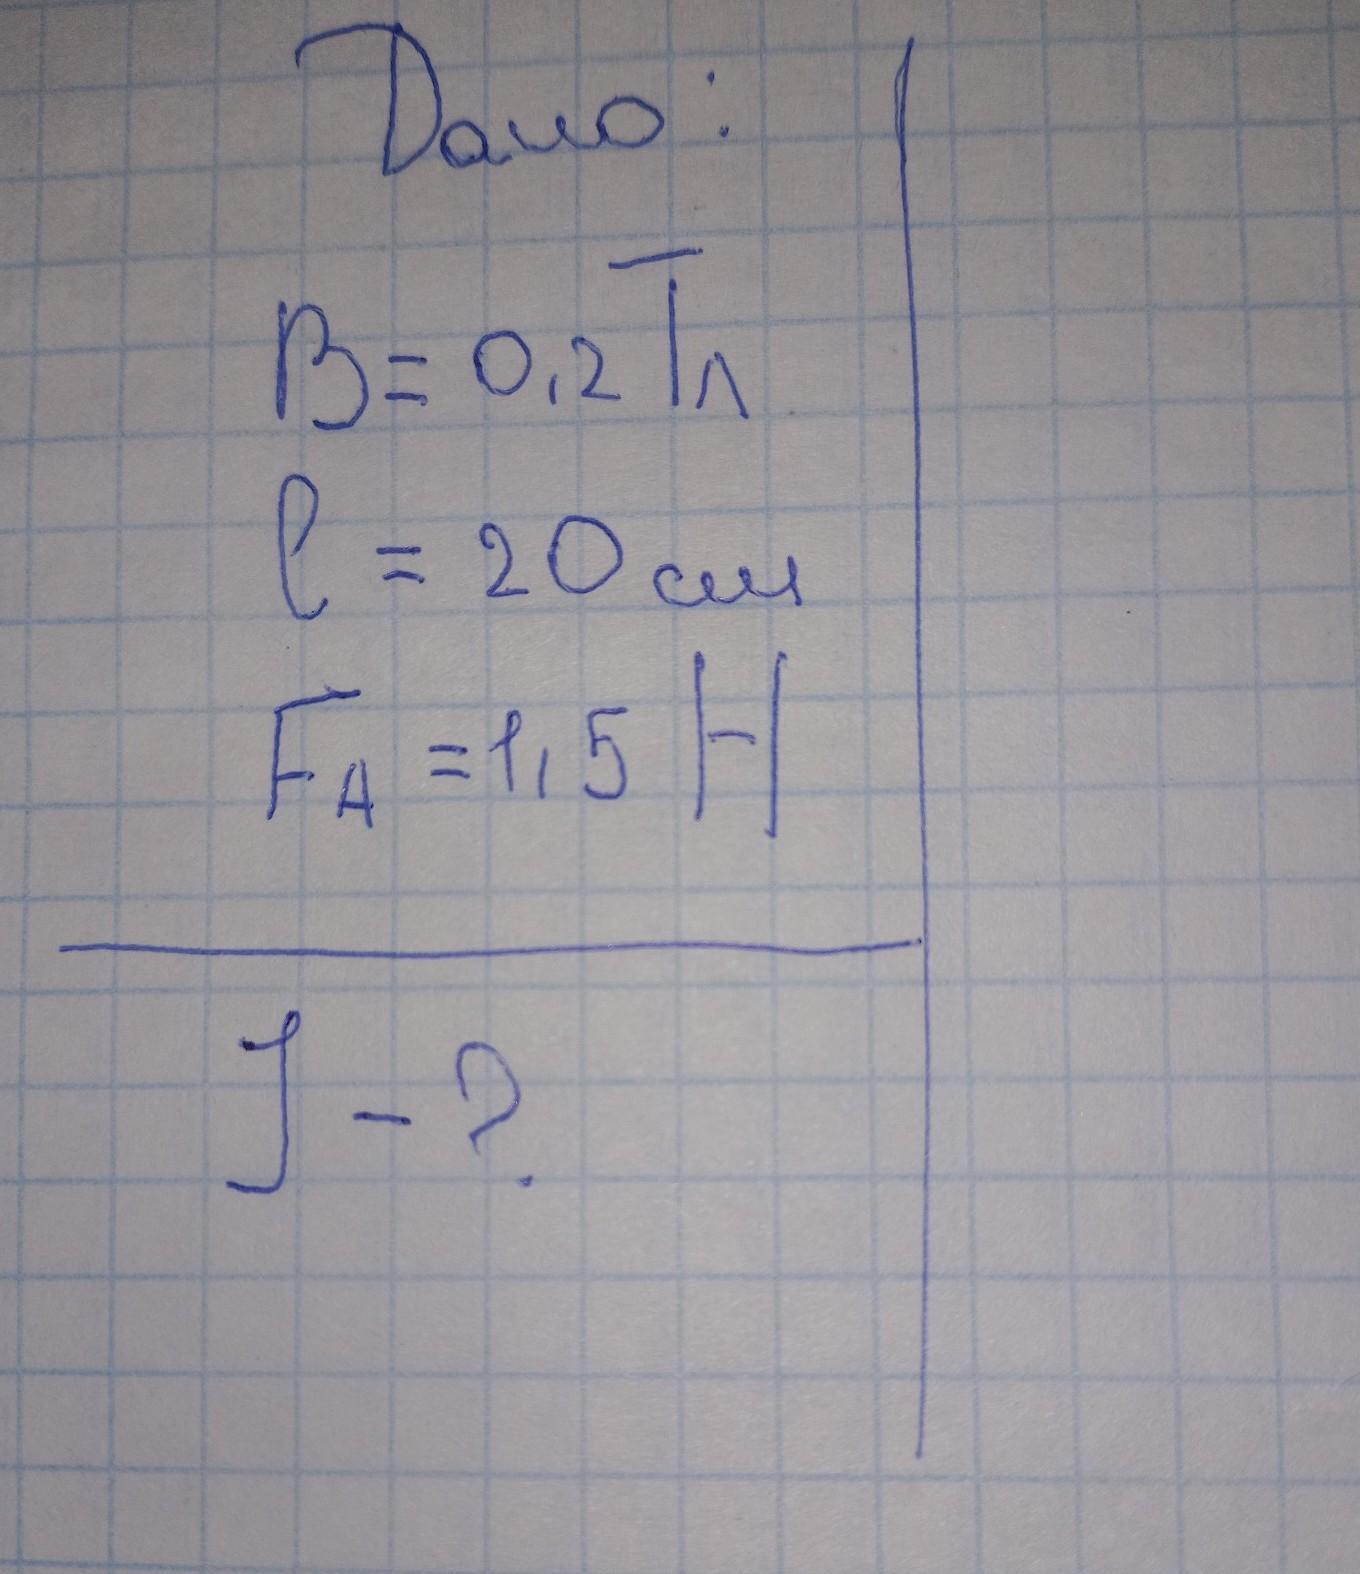 Дано:
B = 0,2 Тл
l = 20 см
F_A = 1,5 Н
I - ?